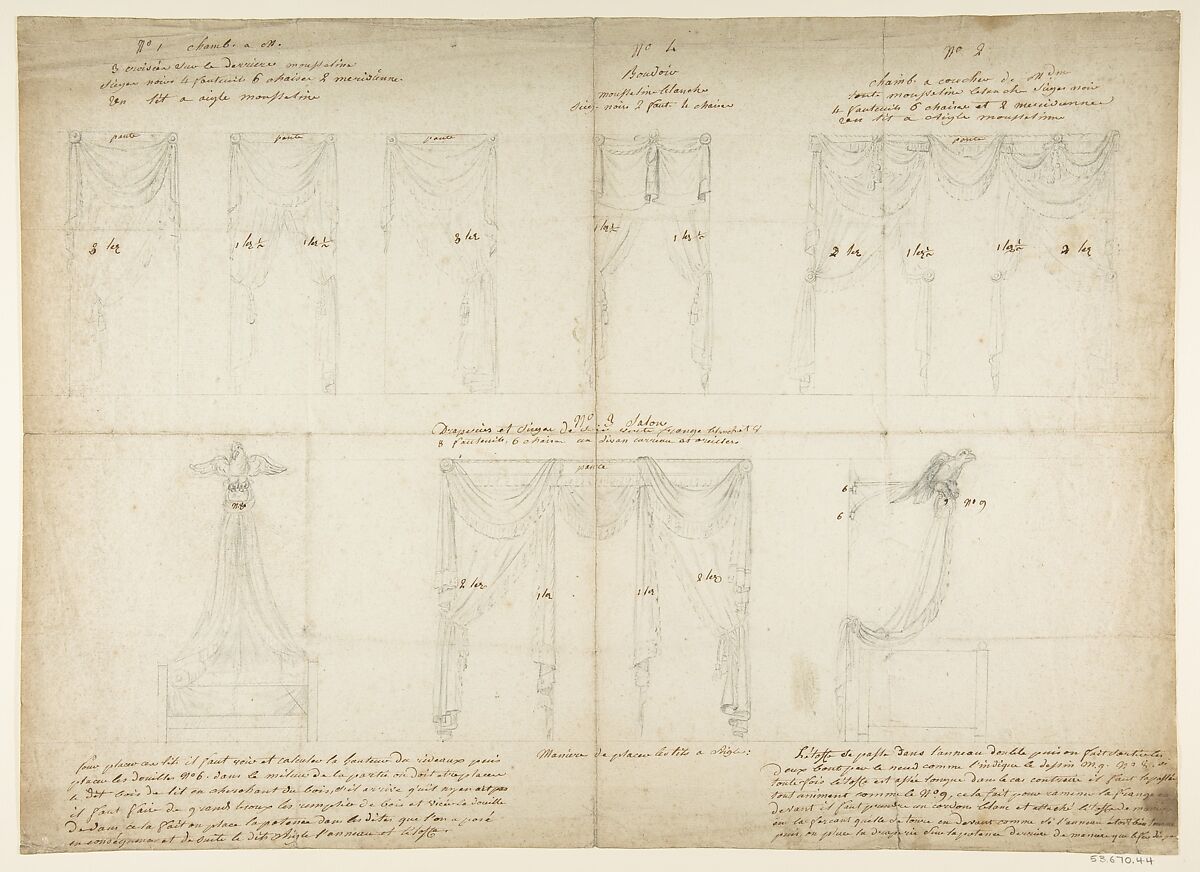 No 1 chamb. a M.
3 croisées sur le derriere mousseline
Sieges noirs 4 fauteuils 6 chaises 2 meridienne
un lit a aigle mousseline
No 4
Boudoir
mousseline blanche
noirs 2 faut. 4 chaises
No 2
chamb. a coucher de Mdm
toute mousseline blanche Sieges noir
4 fauteuils 6 chaises et 2 meridienne
un lit a Aigle mousseline
pante
pante
pante
pante
3 lez
1 lez ½
1 lez ½
3 lez
1 lez ½
1 lez ½
2 lez
1 lez ½
1 lez ½
2 lez
No 3 Salon
Draperies et Sieges de frange blanche
8 fauteuils, 6 chaises un divan carreau et oreillers
pante
No 8
2 lez
1 lez
1 lez
2 lez
6
6
9
No 9
Maniere de placer les lits a Aigle:
pour placer ces lits il faut voir et calculer la hauteur du rideaux puis
placer les douilles No 6. dans le milieu de la partie ou doit etre placer
le dit bois de lit en cherchant du bois, s'il arrive qu'il n'y en ait pas
il faut faire de grands trous les remplir de bois et visser la douille
dedans, cela fait on place la potence dans les dites que l'on a posé
en conséquence et de suite le dit Aigle l'anneau et l'étoffe.
L'étoffe se passe dans l'anneau double puis on fait sortir les
deux bouts par le noeud comme l'indique le dessin No 8, si
toute fois l'étoffe est assez longue dans le cas contraire il faut la passer
tout amment comme le No 9, cela fait pour ramener la frange en
devant il faut prendre un cordon blanc et attaché l'étoffe de maniere
en la forçant qu'elle se tourne en devant comme si l'anneau etoit
puis on place la draperie sur la potence derriere de maniere que
53.670.44